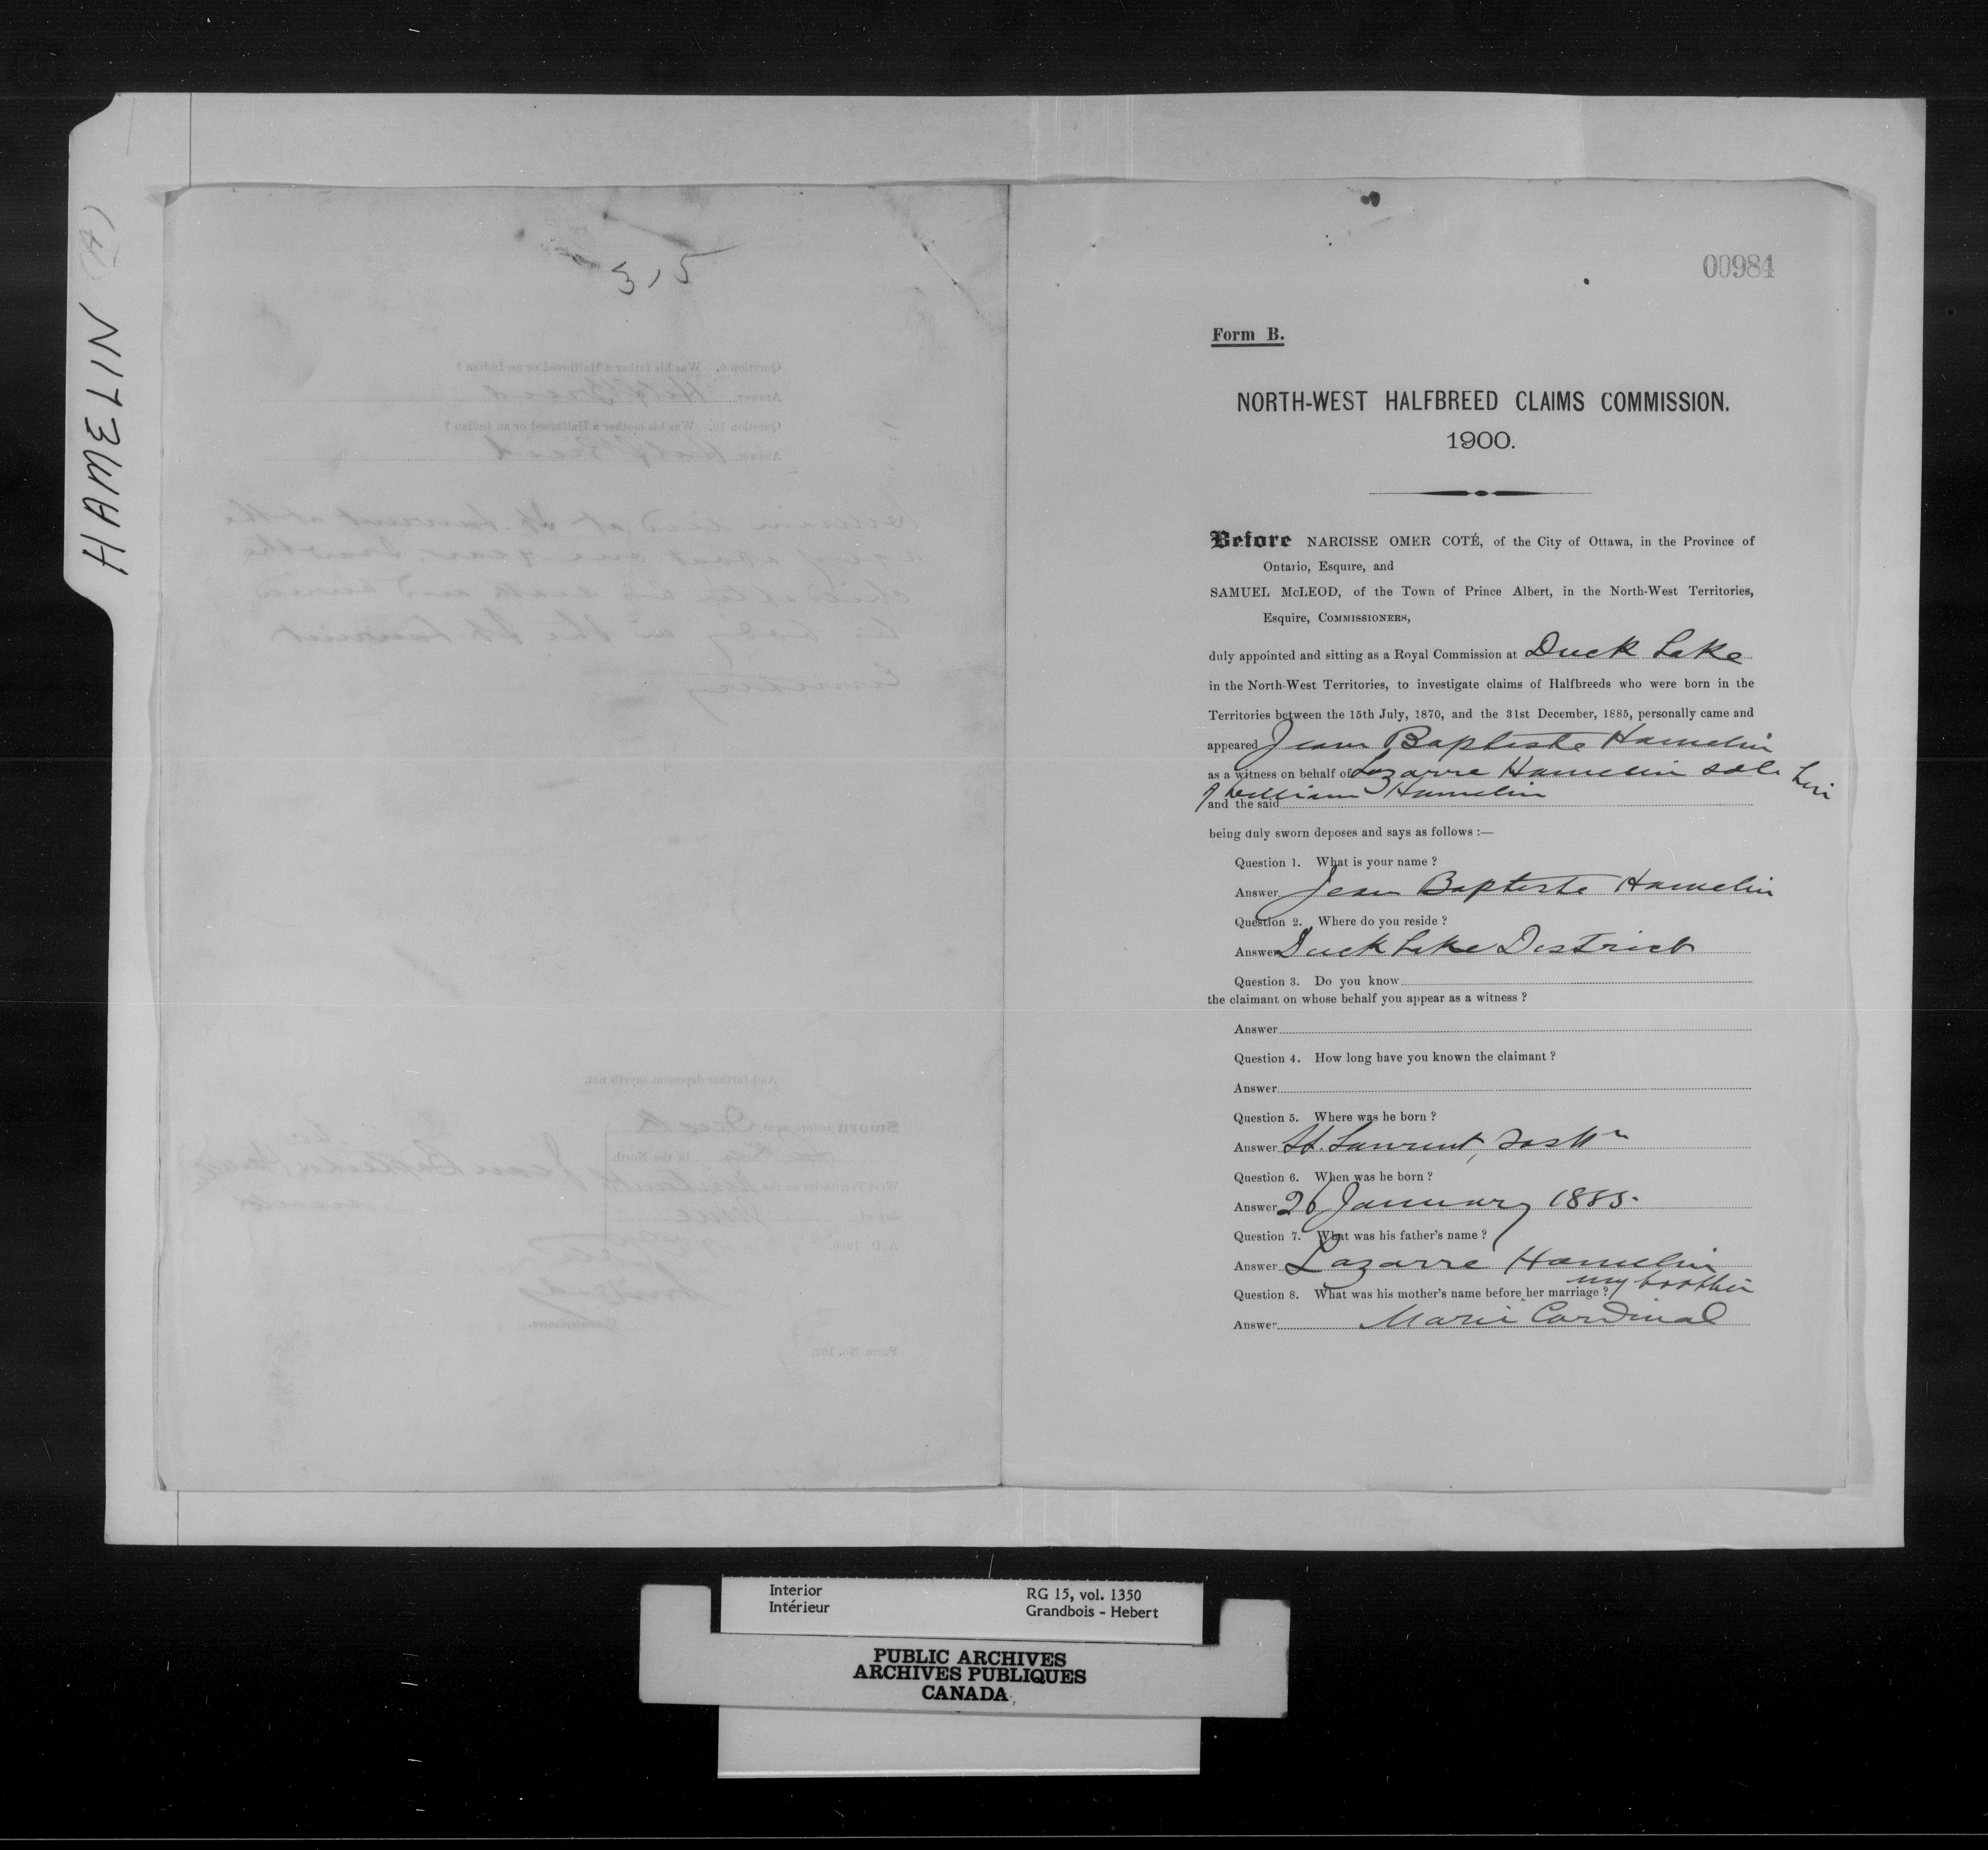 HAMELIN (A)
315
00984
Form B.
NORTH-WEST HALFBREED CLAIMS COMMISSION.
1900.
Before NARCISSE OMER COTÉ, of the City of Ottawa, in the Province of
Ontario, Esquire, and
SAMUEL McLEOD, of the Town of Prince Albert, in the North-West Territories,
Esquire, COMMISSIONERS,
duly appointed and sitting as a Royal Commission at Duck Lake
in the North-West Territories, to investigate claims of Halfbreeds who were born in the
Territories between the 15th July, 1870, and the 31st December, 1885, personally came and
appeared Jean Baptiste Hamelin
as a witness on behalf of Lazarre Hamelin sole heir
of William Hamelin
and the said
being duly sworn deposes and says as follows :—
Question 1. What is your name ?
Answer Jean Baptiste Hamelin
Question 2. Where do you reside ?
Answer Duck Lake District
Question 3. Do you know
the claimant on whose behalf you appear as a witness ?
Answer
Question 4. How long have you known the claimant ?
Answer
Question 5. Where was he born ?
Answer St. Laurent, Sask n
Question 6. When was he born ?
Answer 26 January 1885.
Question 7. What was his father's name ?
Answer Lazarre Hamelin
my brother
Question 8. What was his mother's name before her marriage ?
Answer Marie Cardinal
Interior
Intérieur
RG 15, vol. 1350
Grandbois - Hebert
PUBLIC ARCHIVES
ARCHIVES PUBLIQUES
CANADA